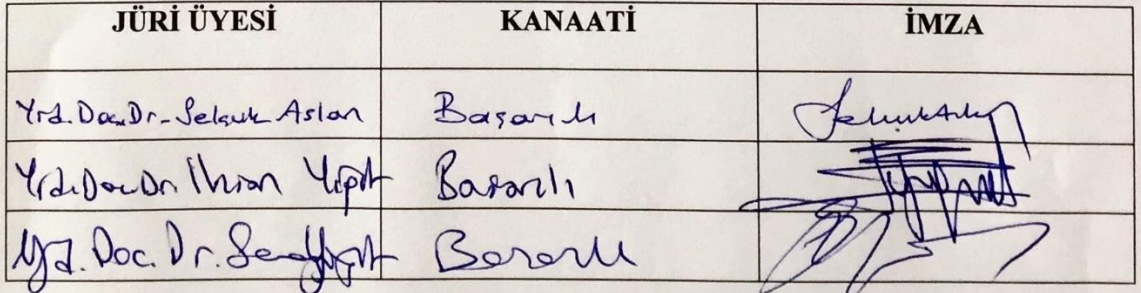 JÜRİ ÜYESİ KANAATİ İMZA
Yrd. Doc. Dr. Selçuk Aslan Başarılı
Yrd. Doc. Dr. İlhan Başarılı
Yrd. Doc. Dr. Başarılı